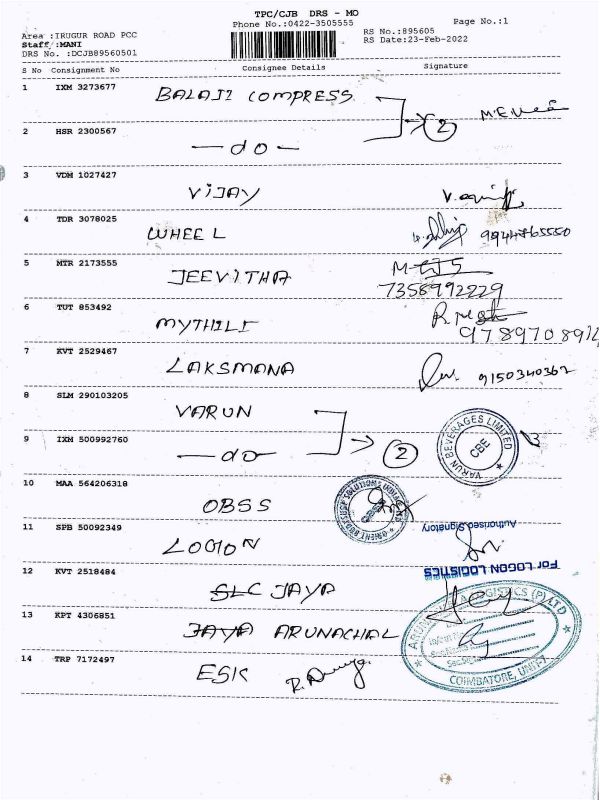 TPC/CJB DRS - MO
Phone No.:0422-3505555
Page No.:1
Area :IRUGUR ROAD PCC
Staff :MANI
DRS No. :DCJB89560501
RS No.:895605
RS Date:23-Feb-2022
S No Consignment No Consignee Details Signature
1 IXM 3273677 BALAJI COMPRESS
2 HSR 2300567 —do— 2
3 VDH 1027427 VIJAY
4 TDR 3078025 WHEEL
5 MTR 2173555 JEEVITHA
7358992229
6 TUT 853492 MYTHILI
7 KVT 2529467 LAKSMANA 9150340362
8 SLM 290103205 VARUN
9 IXM 500992760 —do— 2
VARUN BEVERAGES LIMITED
CBE
10 MAA 564206318 OBSS
11 SPB 50092349 LOGION
Authorised Signatory
For LOGON LOGISTICS
12 KVT 2518484 SLC JAYA
13 KPT 4306851 JAYA ARUNACHAL
COIMBATORE, UNIT-7
14 TRP 7172497 ESIC